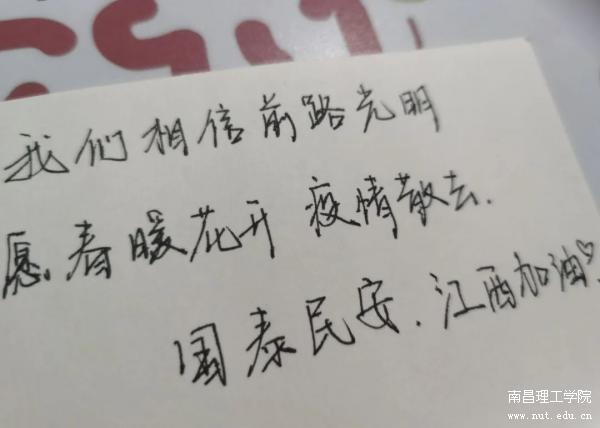 我们相信前路光明
愿春暖花开 疫情散去.
国泰民安.江西加油♡.
南昌理工学院
www.nut.edu.cn